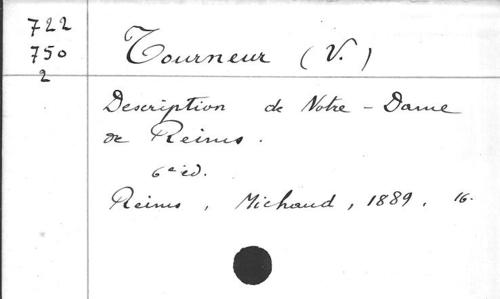 722
750
2
Tourneur (V.)
Description de Notre-Dame
de Reims.
6e éd.
Reims, Michaud, 1889, 16.